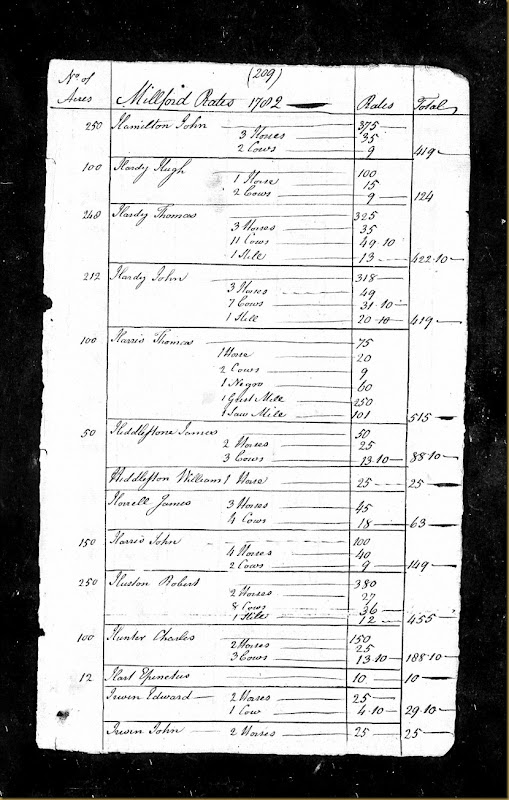 (209)
No of Acres Millford Rates 1782 Rates Total
250 Hamilton John 375
3 Horses 35
2 Cows 9 419
100 Hardy Hugh 100
1 Horse 15
2 Cows 9 124
248 Hardy Thomas 325
3 Horses 35
11 Cows 49.10
1 Still 13 422.10
212 Hardy John 318
3 Horses 49
7 Cows 31.10
1 Still 20.10 419
100 Harris Thomas 75
1 Horse 20
2 Cows 9
1 Negro 60
1 Grist Mill 250
1 Saw Mill 101 515
50 Hiddlestone James 50
2 Horses 25
3 Cows 13.10 88.10
Hiddleston William 1 Horse 25 25
Horrell James 3 Horses 45
4 Cows 18 63
150 Harris John 100
4 Horses 40
2 Cows 9 149
250 Huston Robert 380
2 Horses 27
8 Cows 36
1 Still 12 455
100 Hunter Charles 150
2 Horses 25
3 Cows 13.10 188.10
12 Hart Epinetus 10 10
Irwin Edward 2 Horses 25
1 Cow 4.10 29.10
Irwin John 2 Horses 25 25